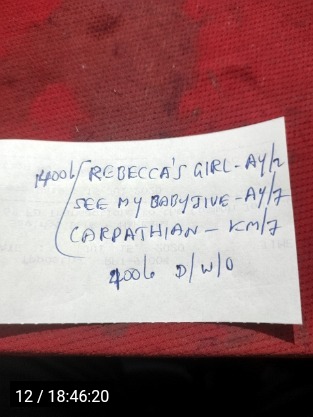 1400/- REBECCA'S GIRL - AY/2
SEE MY BABY JIVE - AY/7
CARPATHIAN - KM/7
400/- D/W/O
12 / 18:46:20